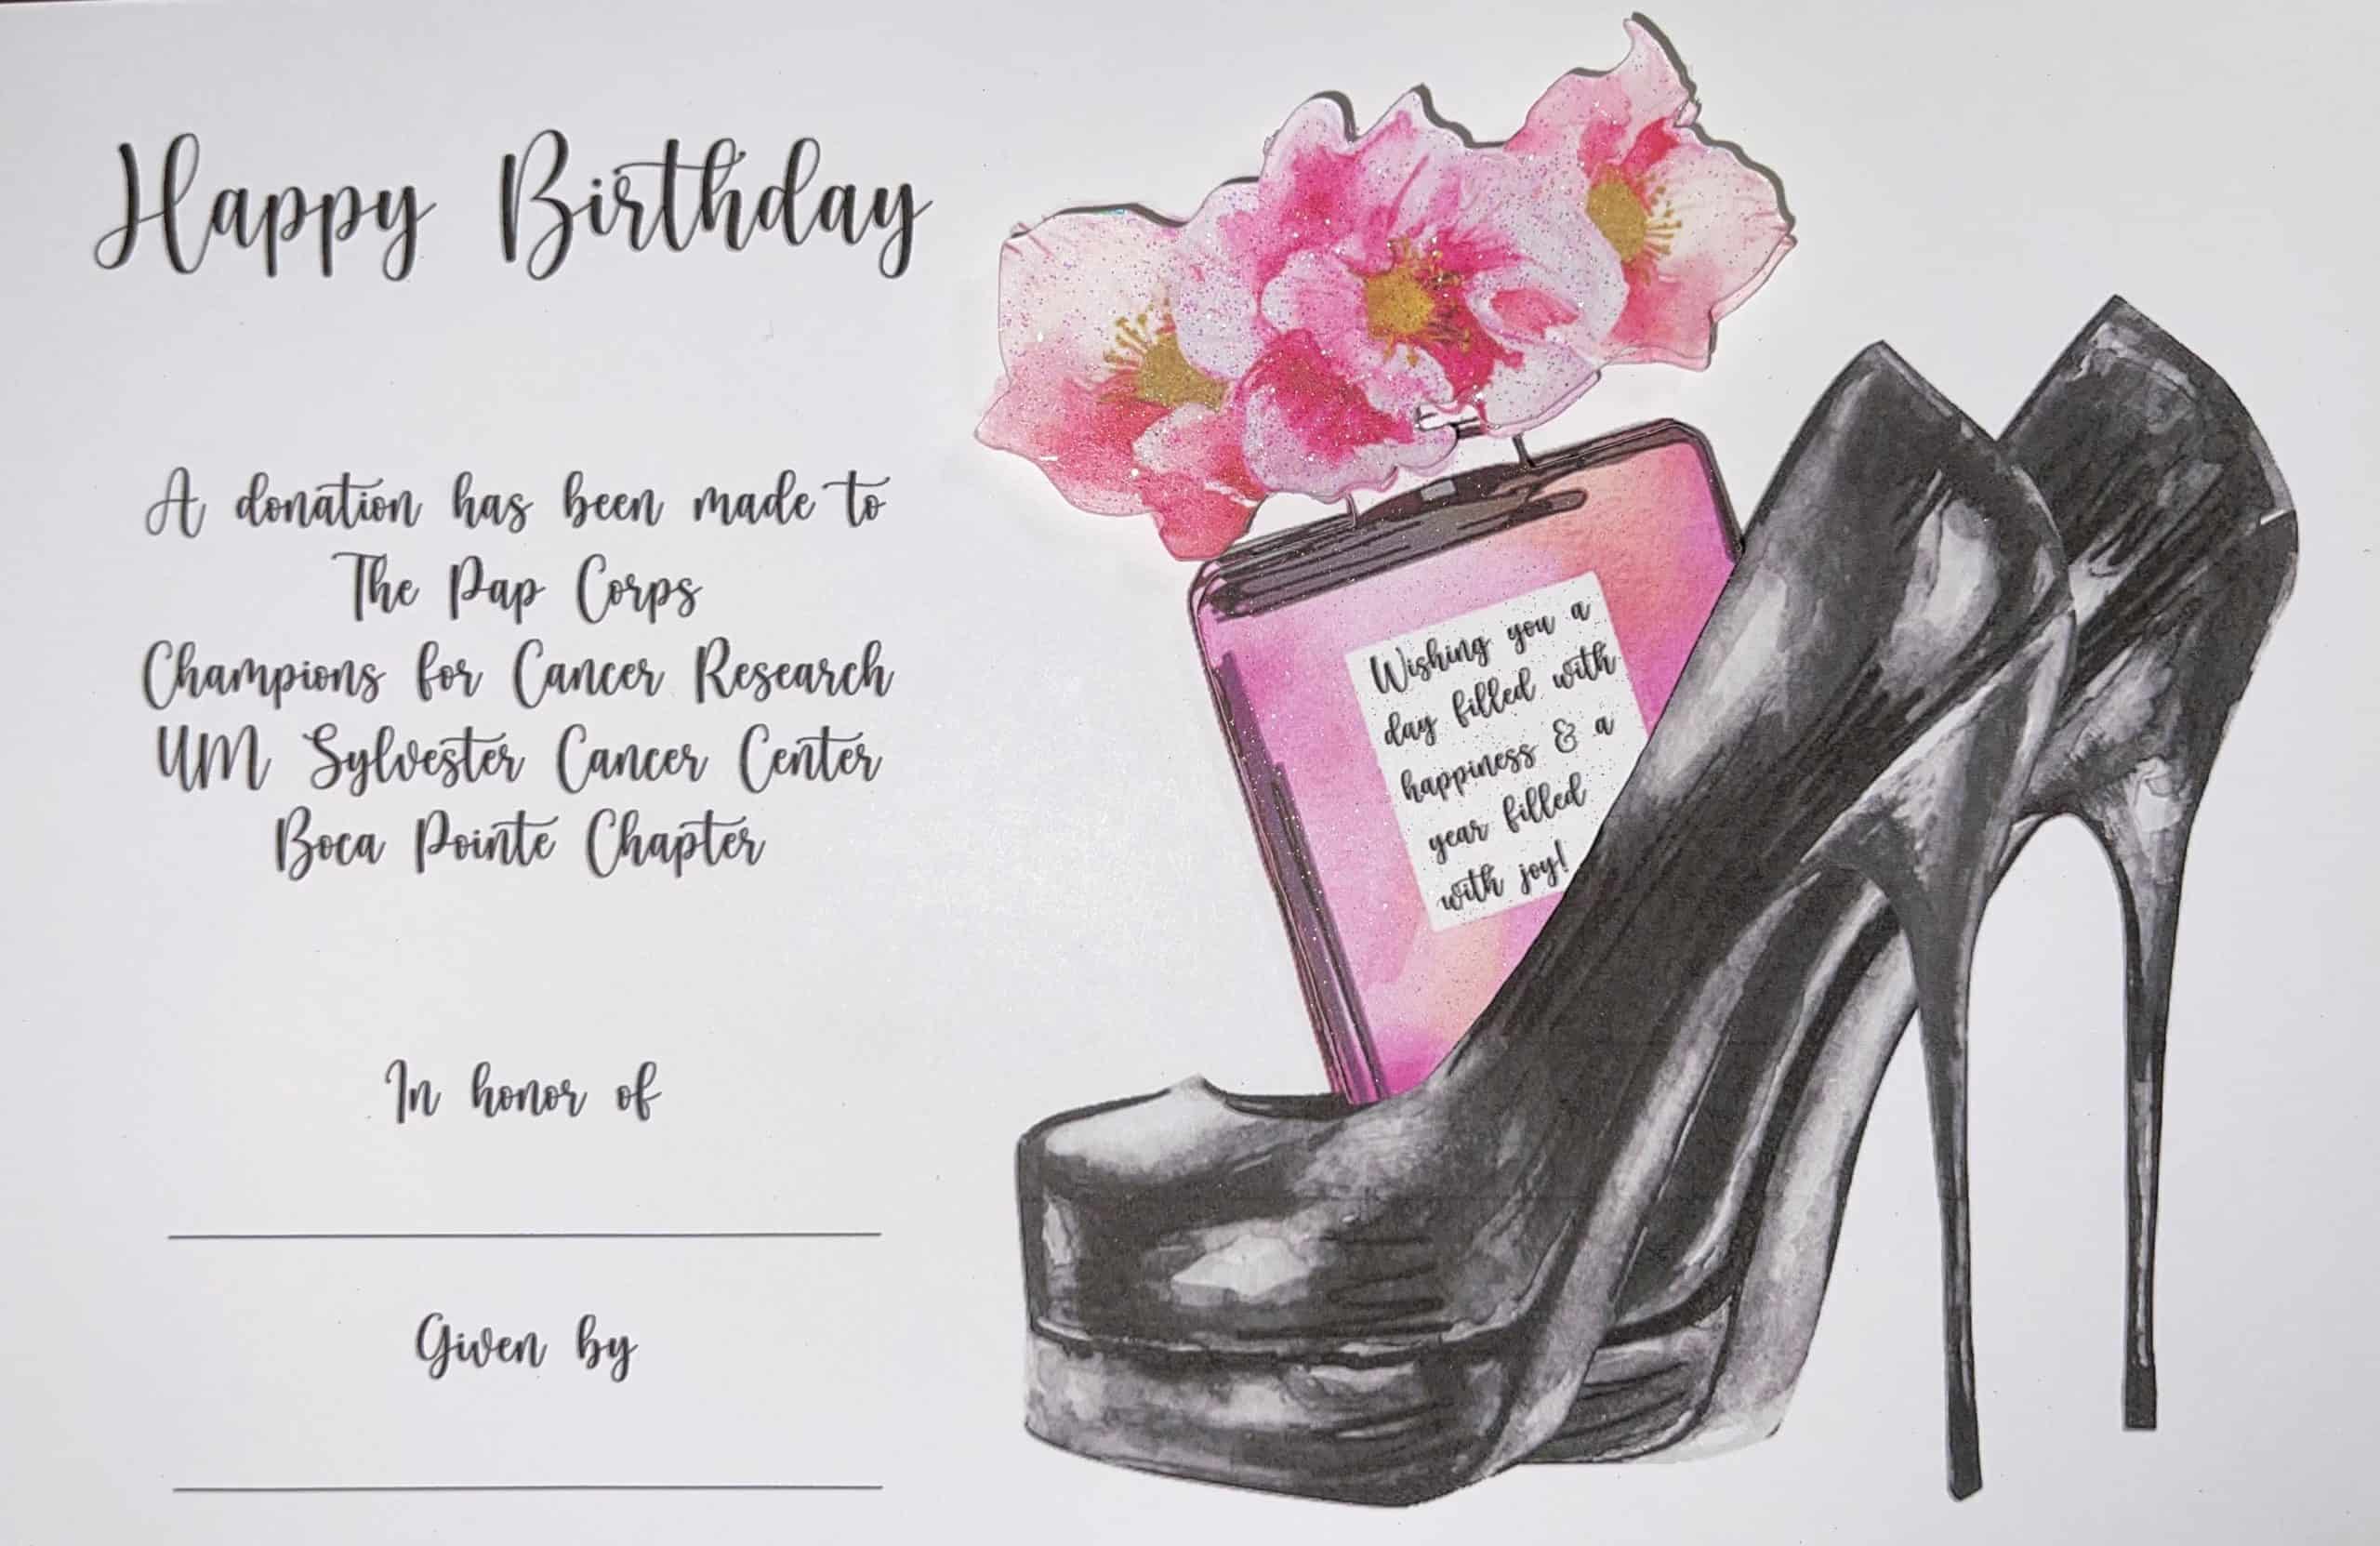 Happy Birthday
A donation has been made to
The Pap Corps
Champions for Cancer Research
UM Sylvester Cancer Center
Boca Pointe Chapter
In honor of
Given by
Wishing you a
day filled with
happiness & a
year filled
with joy!